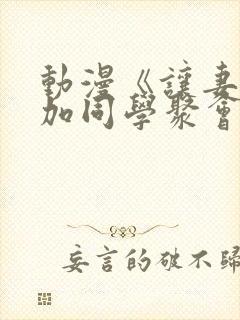 動漫《讓妻
加同學聚會
妄言的破不歸